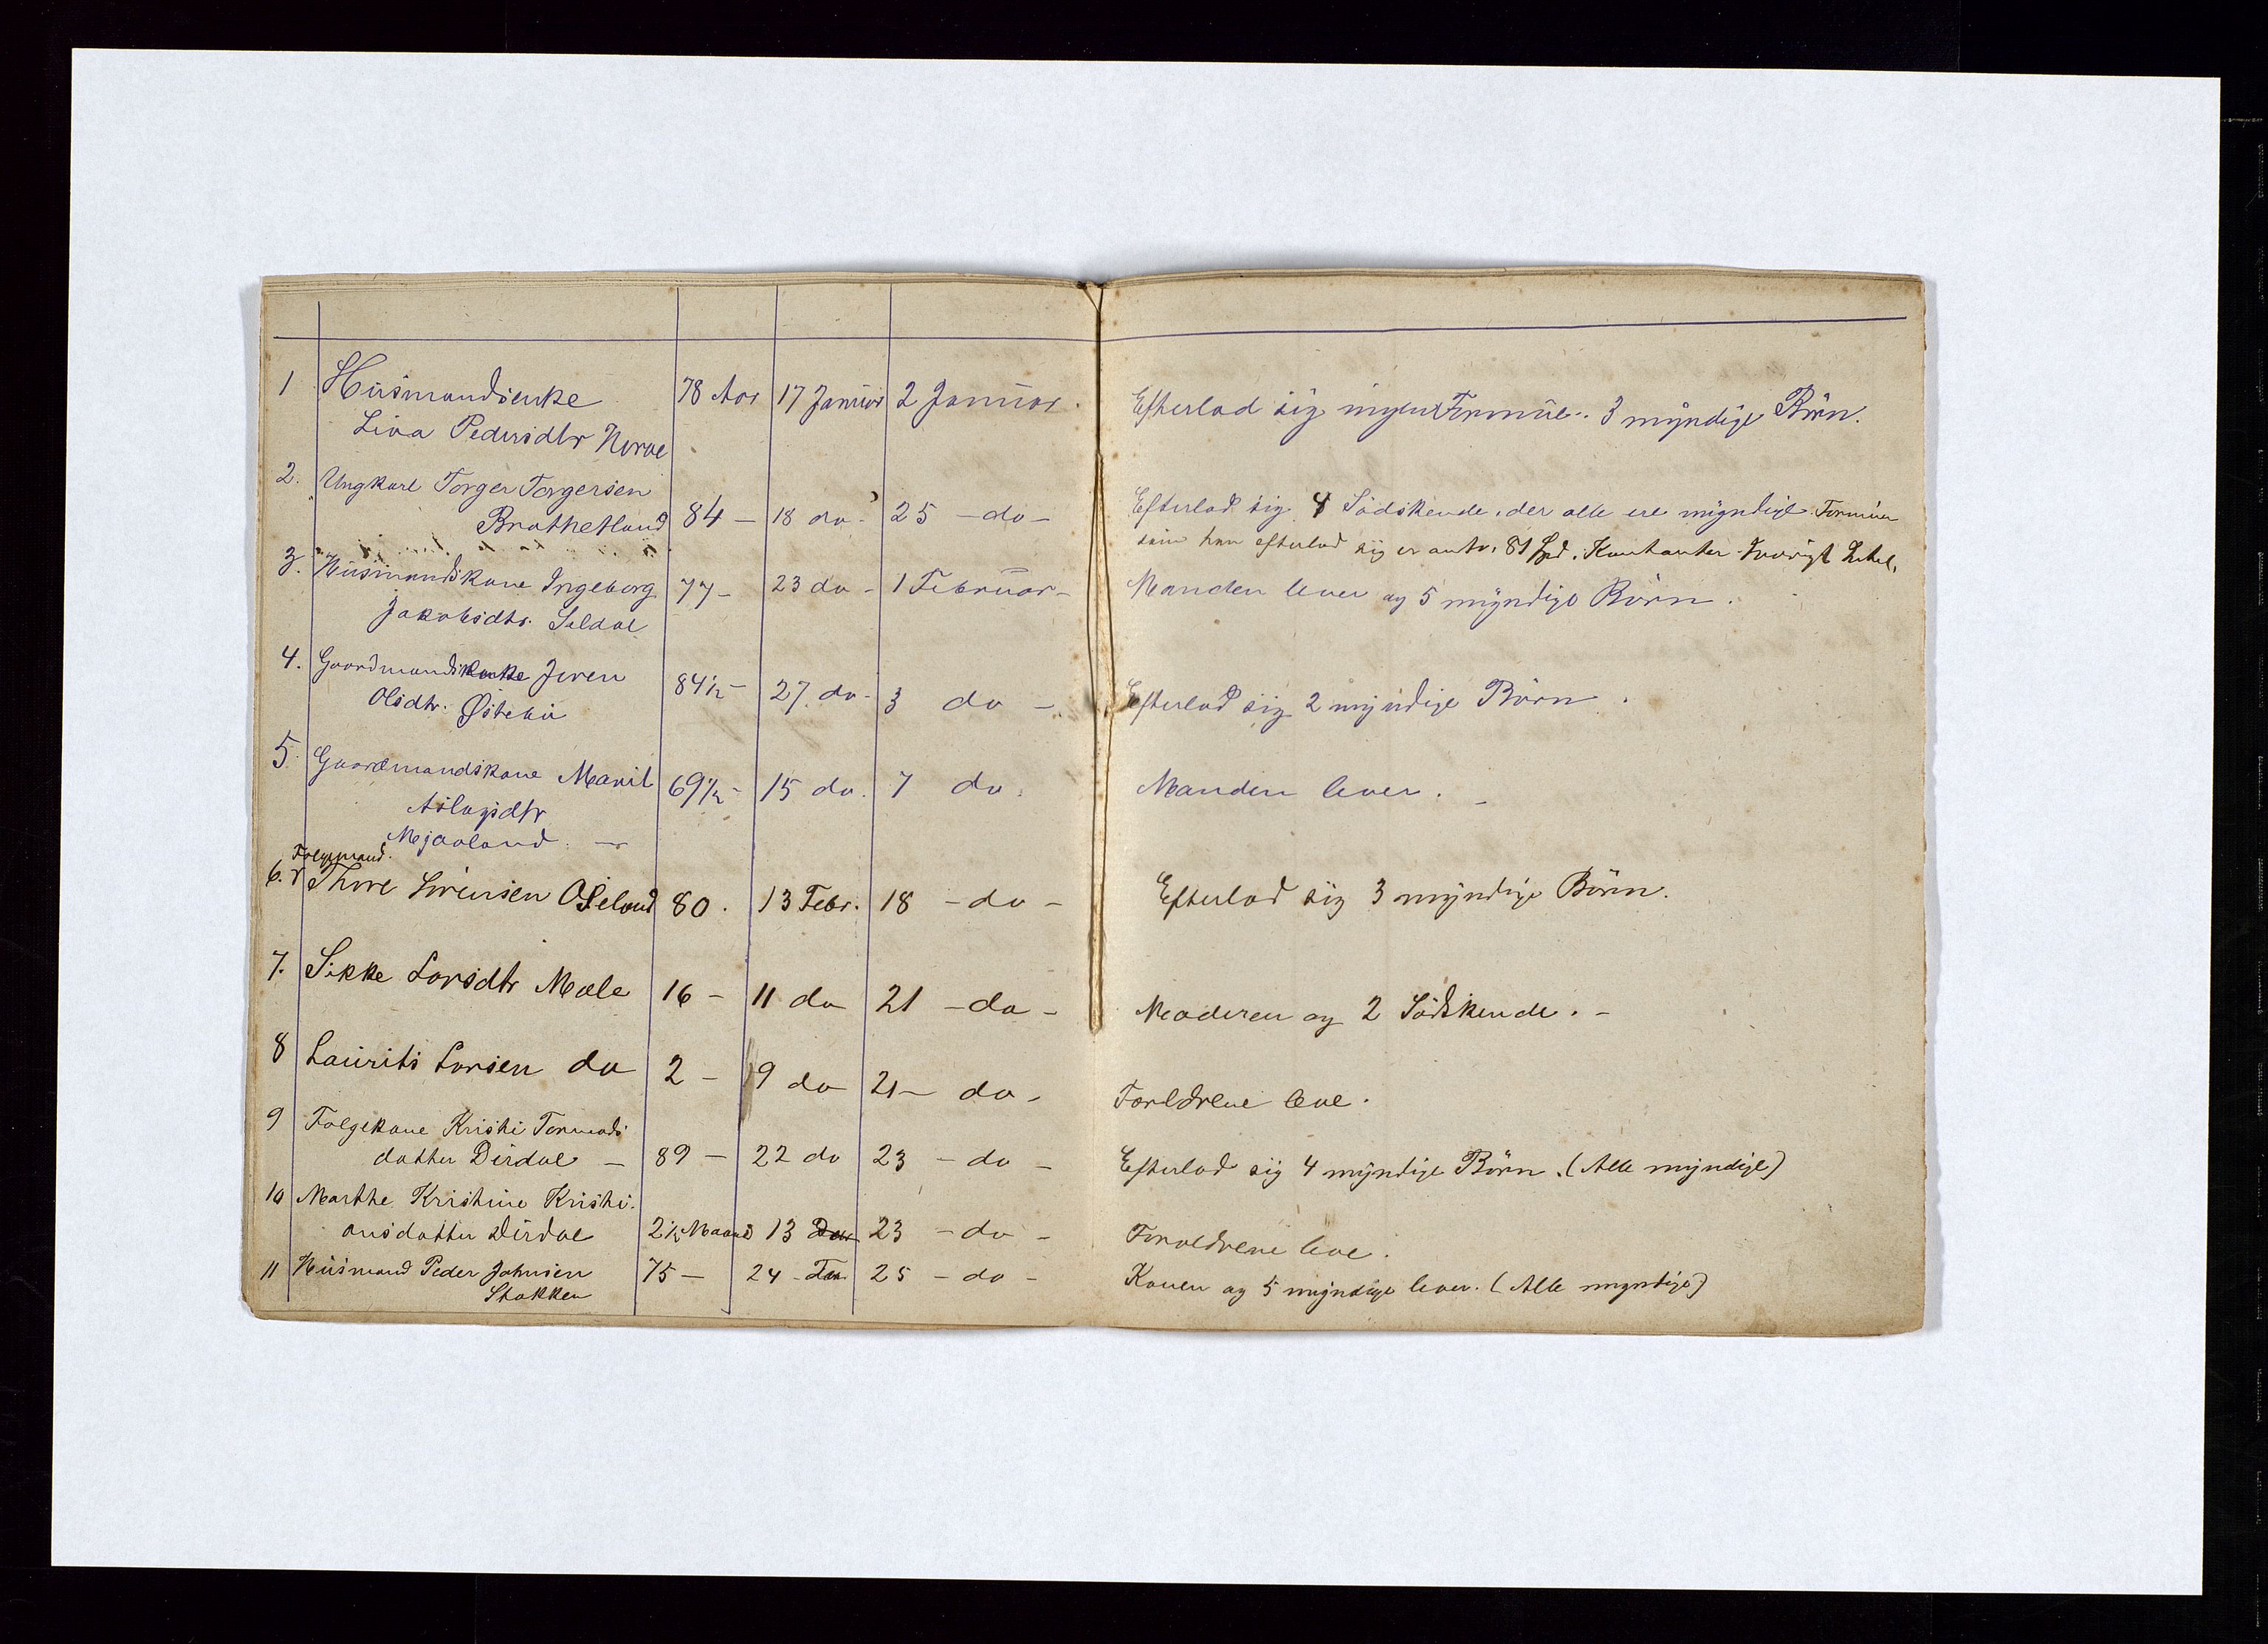 1 Husmandsenke 78 Aar 17 Januar 2 Januar. Efterlod sig ingen Formue. 3 myndige Børn.
Liva Pedersdtr Norae
2. Ungkarl Torger Torgersen
Brathetland 84 — 18 do - 25 - do - Efterlod sig 4 Sødskende, der alle ere myndige. Formue
som han efterlod sig er antv. 81 Kontanter
3. Husmandskone Ingeborg 77 - 23 do - 1 Februar - Manden lever og 5 myndige Børn.
Jakobsdtr. Seldal
4. Gaardmandsenke Jeren 84½ - 27. do - 3 do - Efterlod sig 2 myndige Børn.
Olsdtr. Østebø
5. Gaardmandskone Marit 69½ - 15 do. 7 do. Manden lever. -
Aslagsdtr
Mjaaland. —
Folgemand.
6. Thore Sørensen Oseland 80. 13 Febr. 18 - do - Efterlod sig 3 myndige Børn.
7. Sikke Larsdtr Mæle 16 - 11 do 21 - do - Moderen og 2 Sødskende. -
8 Laurits Larsen do 2 - 9 do 21 - do - Forældrene leve.
9 Folgekone Kristi Tormods
datter Dirdal — 89 — 22 do 23 - do - Efterlod sig 4 myndige Børn. (Alle myndige)
10 Marthe Kristine Kristi-
ansdatter Dirdal 2½ Maaned 13 23 - do - Forældrene leve.
11 Husmand Peder Johnsen 75 — 24 25 - do - Konen og 5 myndige lever. (Alle myndige)
Stokken